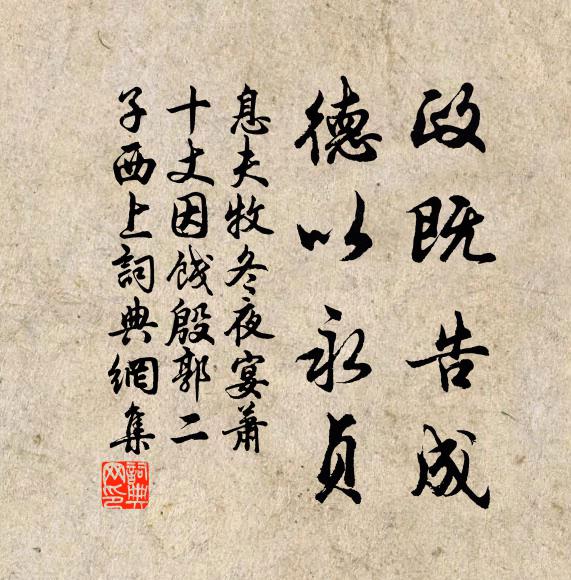 政既告成
德以永贞
息夫牧冬夜宴萧
十丈因饯殷郭二
子西上詞典網集
詞典网印